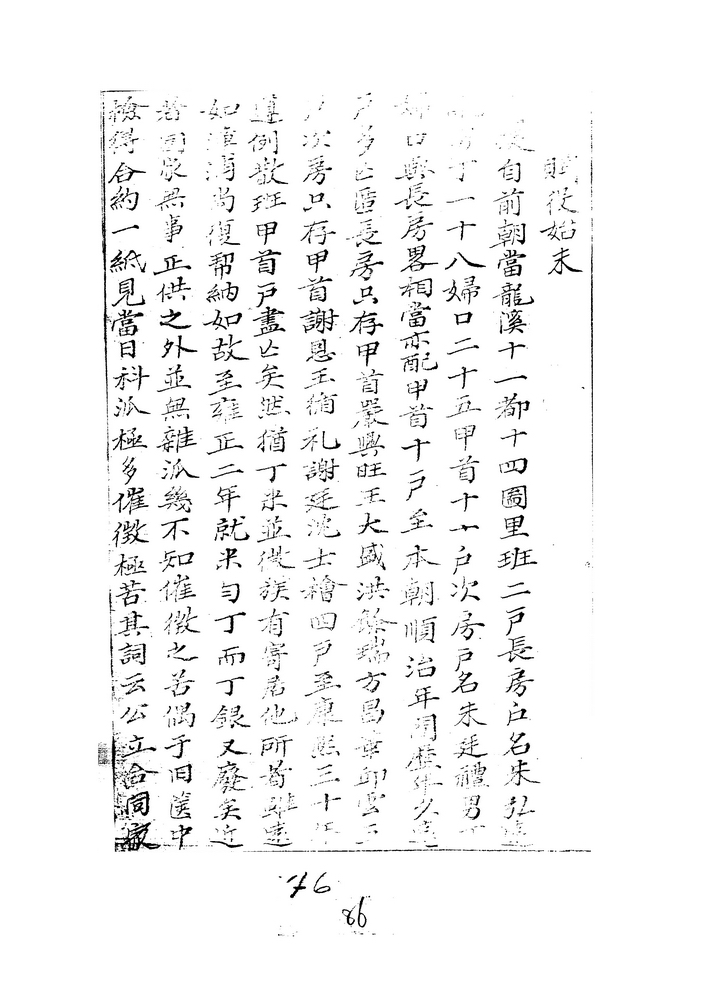 賦役始末
役自前朝當龍溪十一都十四圖里班二戶長房戶名朱弘遠
丁一十八婦口二十五甲首十一戶次房戶名朱廷禮男丁
婦口與長房畧相當亦配甲首十戶至本朝順治年間歷年久遠
戶多亡匿長房只存甲首嚴興旺王大盛洪餘瑞方昌章邱雲三
戶次房只存甲首謝恩王獅礼謝廷沈士檜四戶至康熙三十年
遵例散班甲首戶盡亡矣然猶丁米並徵族有寄居他所者雖遠
如漳浦尚復帮納如故至雍正二年就米勻丁而丁銀又廢矣近
者國家無事正供之外並無雜派幾不知催徵之苦偶于旧篋中
檢得合約一紙見當日科派極多催徵極苦其詞云公立合同
76
86